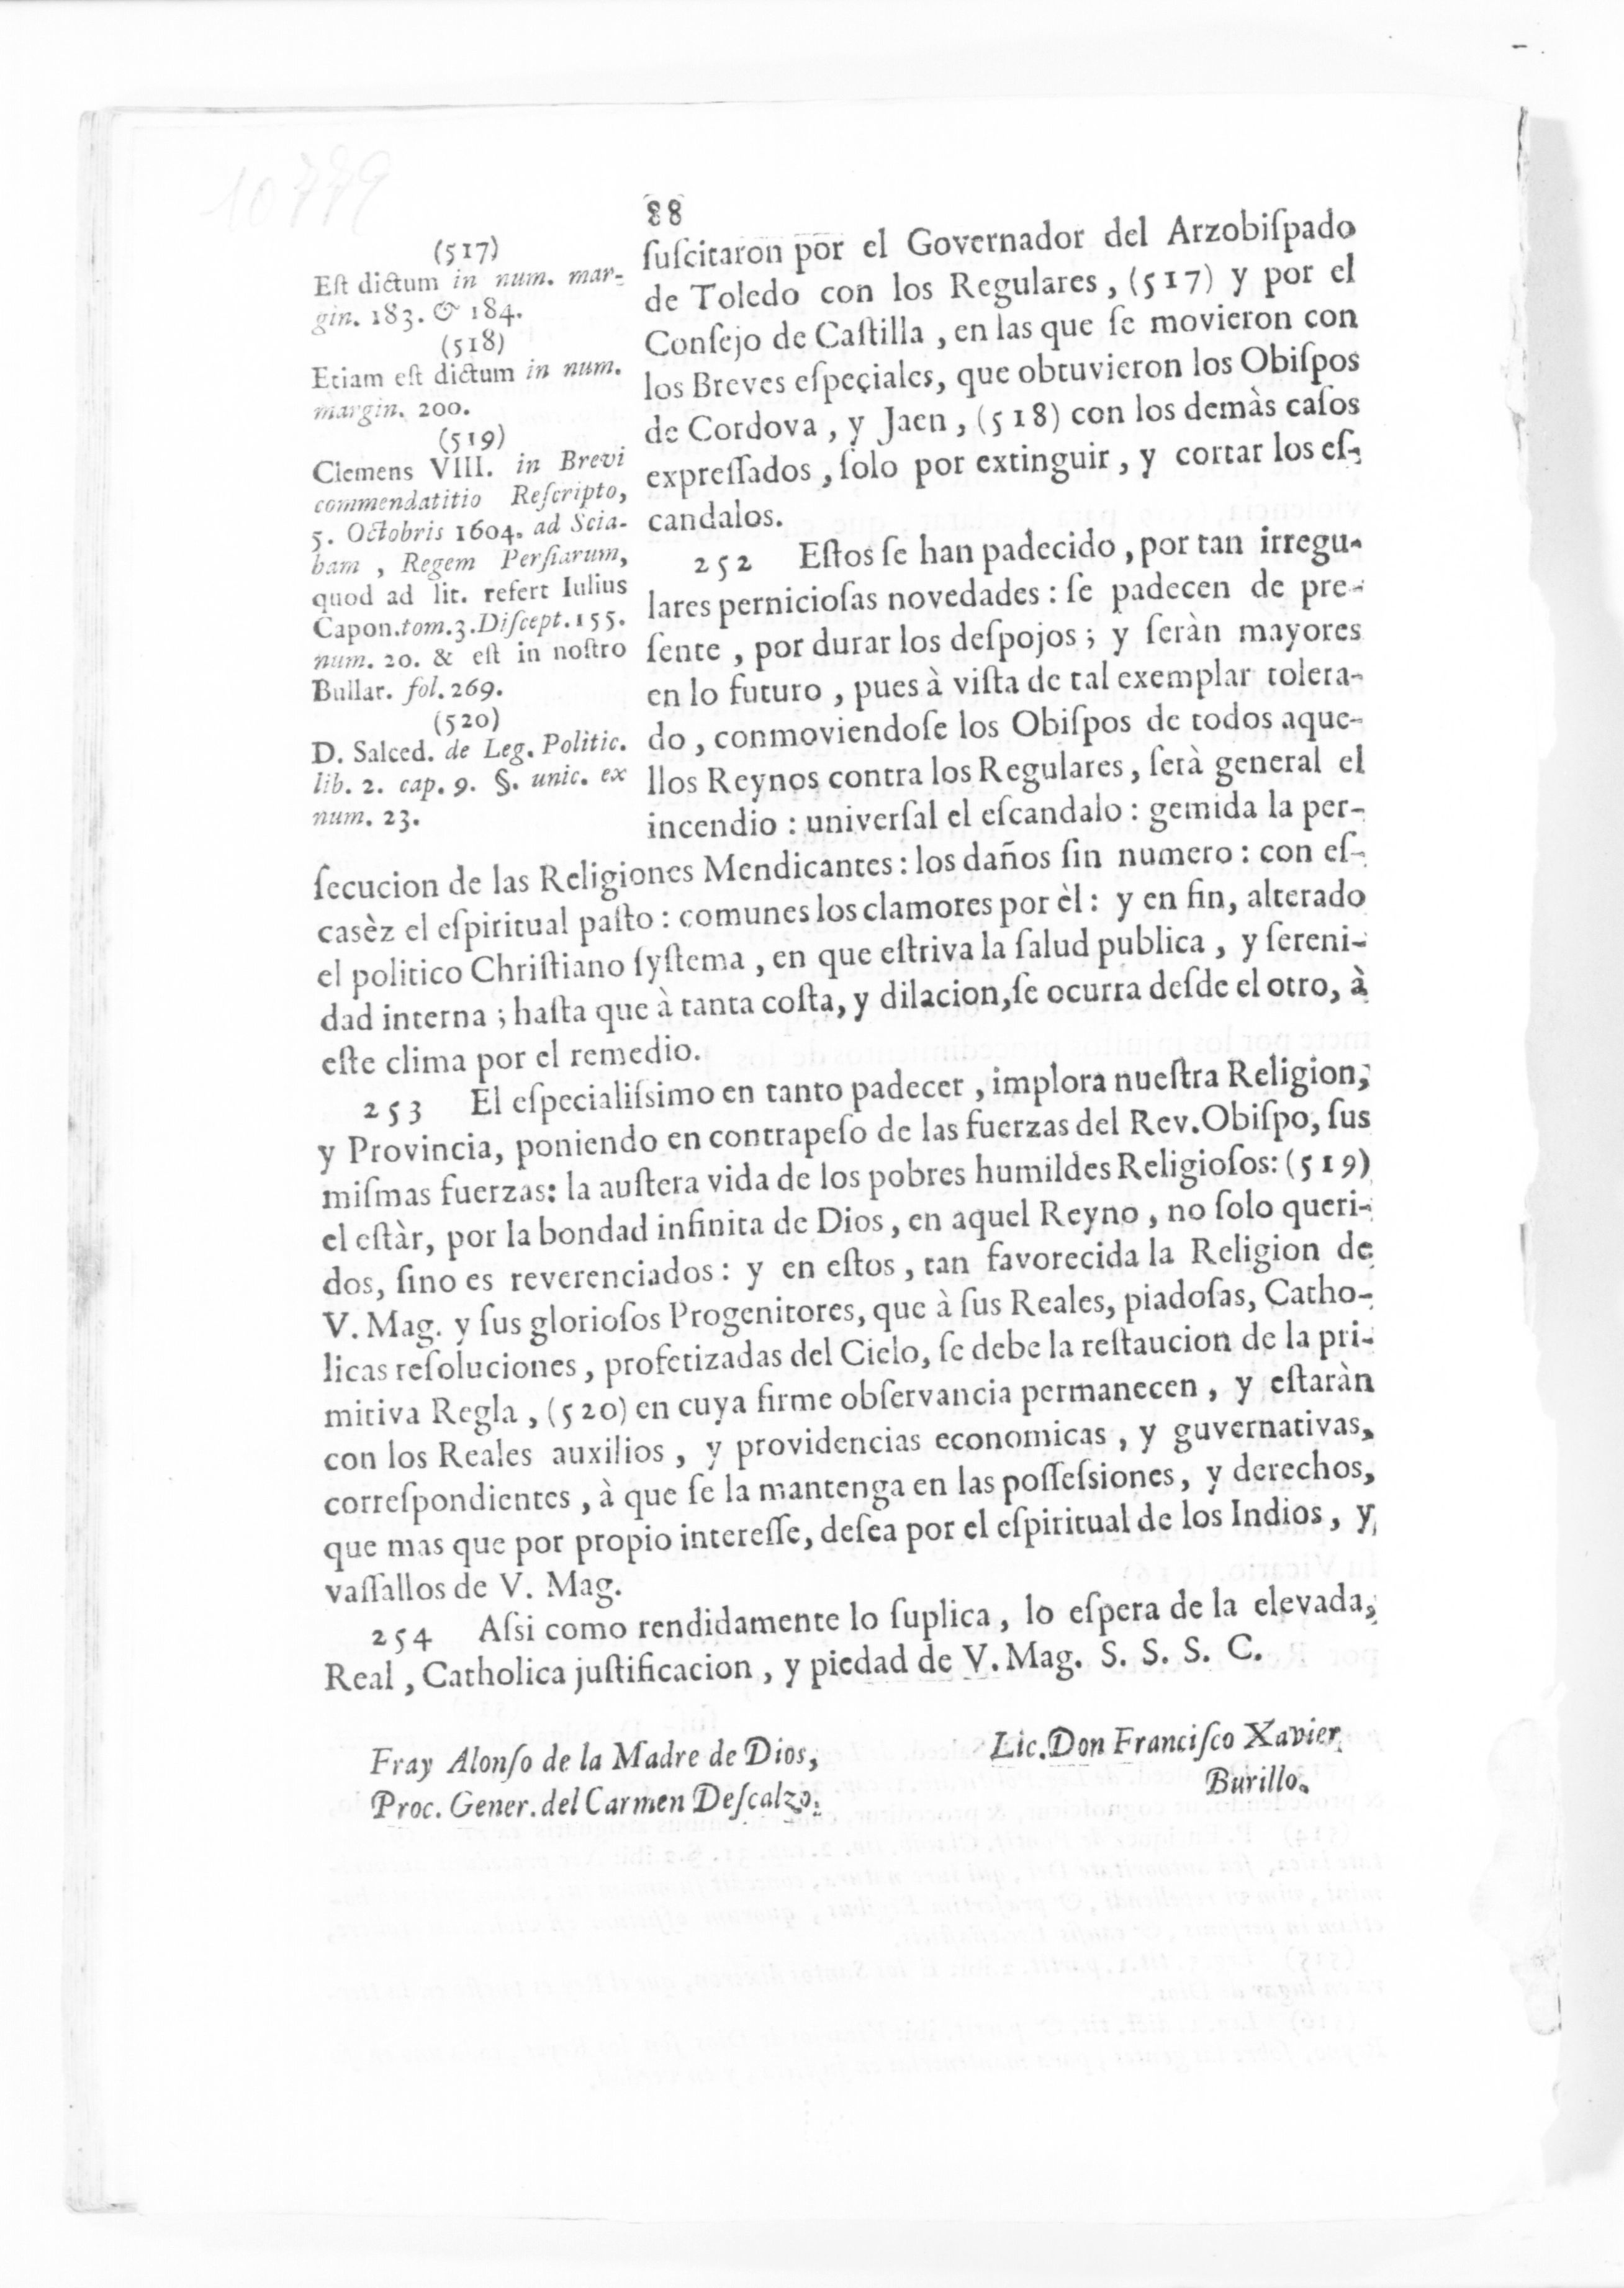 10779
88
(517)
Eſt dictum in num. mar-
gin. 183. & 184.
(518)
Etiam eſt dictum in num.
margin. 200.
(519)
Clemens VIII. in Brevi
commendatitio Reſcripto,
5. Octobris 1604. ad Scia-
bam , Regem Perſiarum,
quod ad lit. refert Iulius
Capon.tom.3.Diſcept.155.
num. 20. & eſt in noſtro
Bullar. fol. 269.
(520)
D. Salced. de Leg. Politic.
lib. 2. cap. 9. §. unic. ex
num. 23.
ſuſcitaron por el Governador del Arzobiſpado
de Toledo con los Regulares , (517) y por el
Conſejo de Caſtilla , en las que ſe movieron con
los Breves eſpeciales, que obtuvieron los Obiſpos
de Cordova , y Jaen , (518) con los demàs caſos
expreſſados , ſolo por extinguir , y cortar los eſ-
candalos.
252 Eſtos ſe han padecido , por tan irregu-
lares pernicioſas novedades : ſe padecen de pre-
ſente , por durar los deſpojos ; y ſeràn mayores
en lo futuro , pues à viſta de tal exemplar tolera-
do , conmoviendoſe los Obiſpos de todos aque-
llos Reynos contra los Regulares , ſerà general el
incendio : univerſal el eſcandalo : gemida la per-
ſecucion de las Religiones Mendicantes : los daños ſin numero : con eſ-
casèz el eſpiritual paſto : comunes los clamores por èl : y en fin, alterado
el politico Chriſtiano ſyſtema , en que eſtriva la ſalud publica , y ſereni-
dad interna ; haſta que à tanta coſta, y dilacion,ſe ocurra deſde el otro, à
eſte clima por el remedio.
253 El eſpecialiſsimo en tanto padecer , implora nueſtra Religion,
y Provincia, poniendo en contrapeſo de las fuerzas del Rev.Obiſpo, ſus
miſmas fuerzas: la auſtera vida de los pobres humildes Religioſos: (519)
el eſtàr, por la bondad infinita de Dios , en aquel Reyno , no ſolo queri-
dos, ſino es reverenciados : y en eſtos , tan favorecida la Religion de
V. Mag. y ſus glorioſos Progenitores, que à ſus Reales, piadoſas, Catho-
licas reſoluciones , profetizadas del Cielo, ſe debe la reſtaucion de la pri-
mitiva Regla , (520) en cuya firme obſervancia permanecen , y eſtaràn
con los Reales auxilios , y providencias economicas , y guvernativas,
correſpondientes , à que ſe la mantenga en las poſſeſsiones , y derechos,
que mas que por propio intereſſe, deſea por el eſpiritual de los Indios , y
vaſſallos de V. Mag.
254 Aſsi como rendidamente lo ſuplica , lo eſpera de la elevada,
Real , Catholica juſtificacion , y piedad de V. Mag. S. S. S. C.
Fray Alonſo de la Madre de Dios,
Proc. Gener. del Carmen Deſcalzo.
Lic.Don Franciſco Xavier
Burillo.